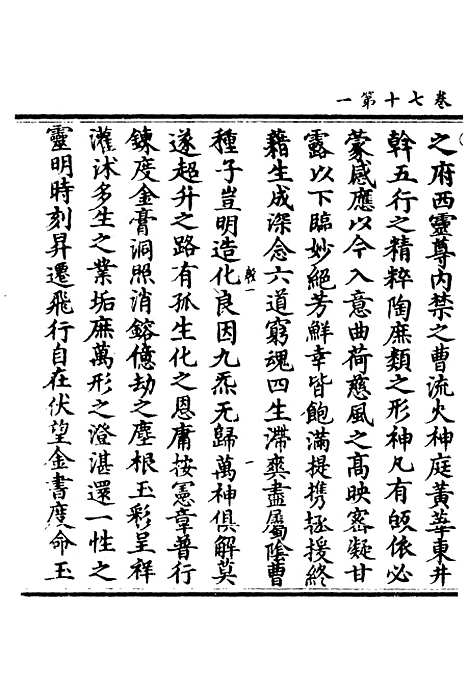 卷七十第一
之府西靈尊內禁之曹流火神庭黃華東井
斡五行之精粹陶庶類之形神凡有皈依必
蒙感應以今入意曲荷慈風之高映密凝甘
露以下臨妙絕芳鮮幸皆飽滿提携拯援終
藉生成深念六道窮魂四生滯爽盡屬陰曹
種子豈明造化良因九炁无歸萬神俱解莫
遂超升之路有孤生化之恩庸按憲章普行
鍊度金膏洞照消鎔億劫之塵根玉彩呈祥
灌沐多生之業垢庶萬形之澄湛還一性之
靈明時刻昇遷飛行自在伏望金書度命玉